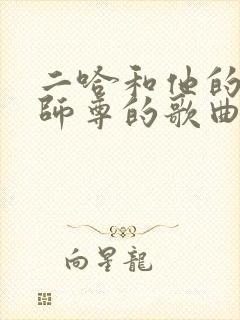 二哈和他的
师尊的歌曲
向星龍